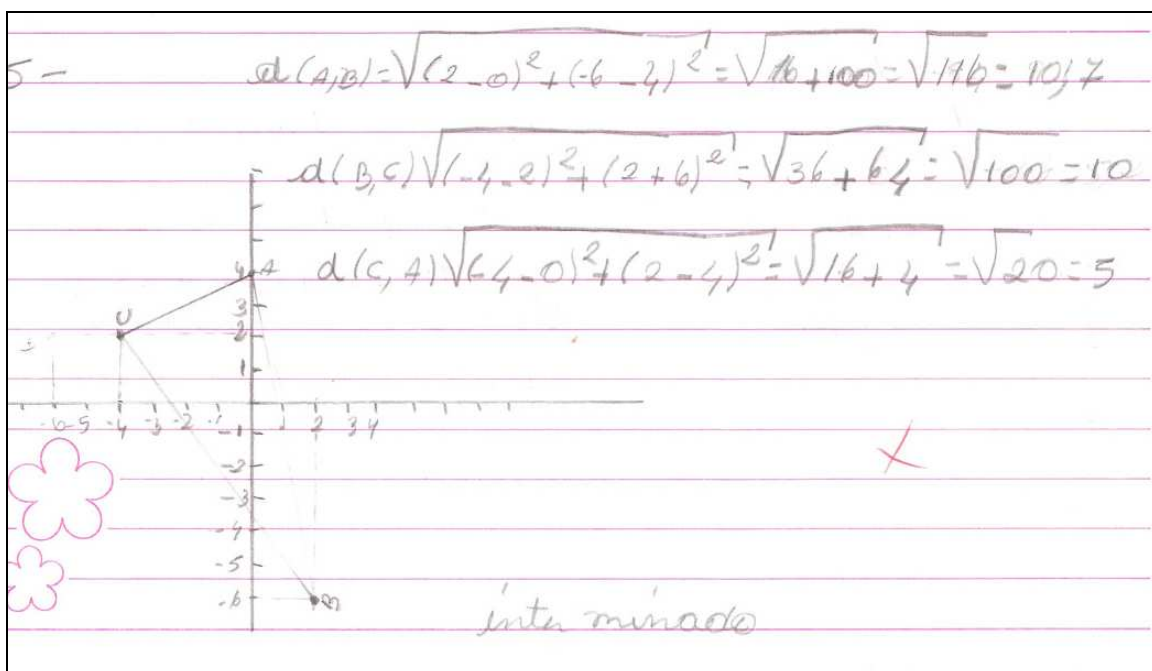 5- d(A,B)=√(2-0)²+(-6-4)²=√16+100=√116=10,7
d(B,C)√(-4-2)²+(2+6)²=√36+64=√100=10
d(C,A)√(-4-0)²+(2-4)²=√16+4=√20=5
4 A
3
C
2
1
-6 -5 -4 -3 -2 -1 1 2 3 4
-1
-2
-3
-4
-5
-6 B
inter minado